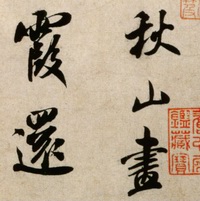 秋山畫
霞還